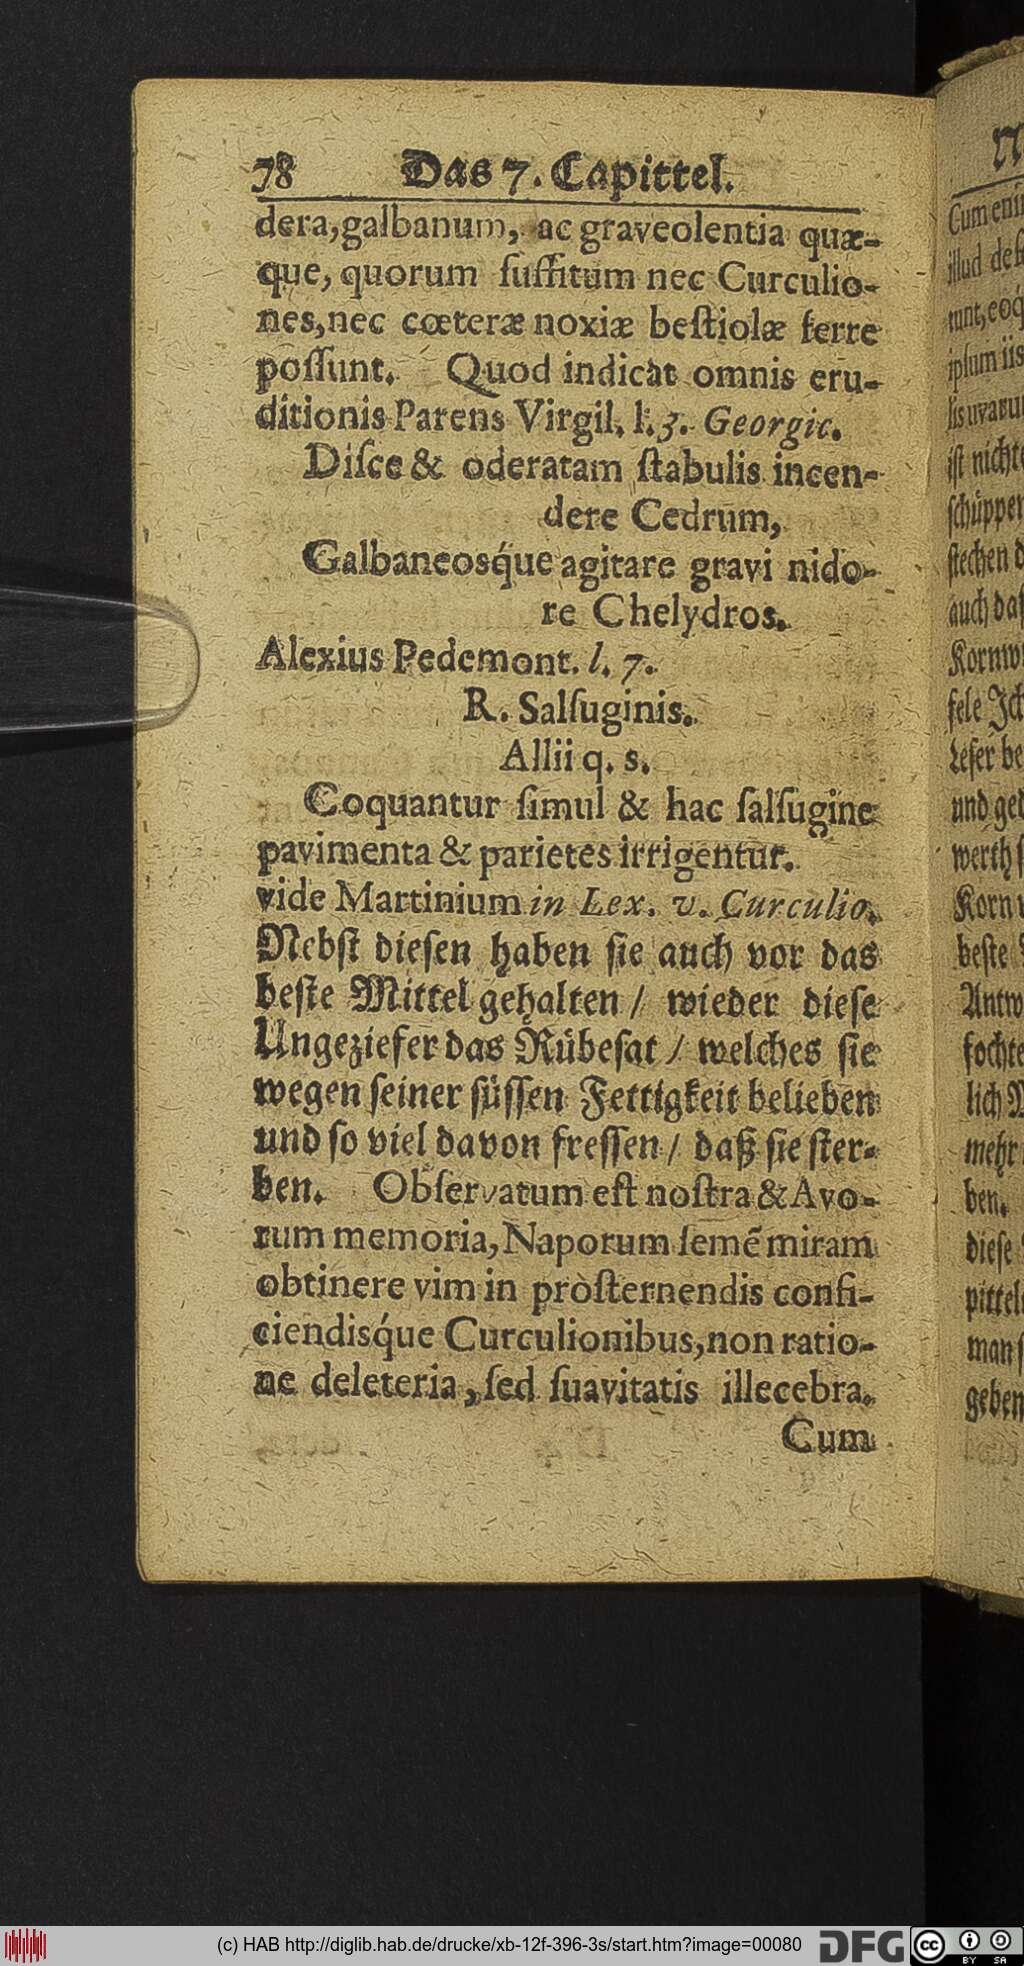 78 Das 7. Capittel.
dera, galbanum, ac graveolentia quæ-
que, quorum ſuffitum nec Curculio-
nes, nec cœteræ noxiæ beſtiolæ ferre
poſſunt. Quod indicat omnis eru-
ditionis Parens Virgil. l. 3. Georgic.
Diſce & oderatam ſtabulis incen-
dere Cedrum,
Galbaneosq́ue agitare gravi nido-
re Chelydros.
Alexius Pedemont. l. 7.
R. Salſuginis.
Allii q. s.
Coquantur ſimul & hac ſalſugine
pavimenta & parietes irrigentur.
vide Martinium in Lex. v. Curculio.
Nebſt dieſen haben ſie auch vor das
beſte Mittel gehalten / wieder dieſe
Ungeziefer das Rübeſat / welches ſie
wegen ſeiner ſüſſen Fettigkeit belieben
und ſo viel davon freſſen / daß ſie ſter-
ben. Obſervatum eſt noſtra & Avo-
rum memoria, Naporum ſemẽ miram
obtinere vim in pròſternendis confi-
ciendisq́ue Curculionibus, non ratio-
ne deleteria, ſed ſuavitatis illecebra.
Cum
Cum eni
illud deſ
runt, eoq́
ipſum iis
lis uvaru
iſt nicht
ſchüppen
ſtechen d
auch daſ
Kornw
ſele Ich
Leſer be
und geb
werth ſ
Korn
beſte
Antw
fochte
lich M
mehr
ben.
dieſe
pittel
man ſ
geben
(c) HAB http://diglib.hab.de/drucke/xb-12f-396-3s/start.htm?image=00080
DFG
cc BY SA